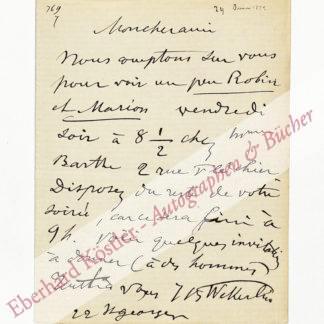 769
7
29 
Mon cher ami
Nous comptons sur vous
pour voir un peu Robin
et Marion vendredi
soir à 8 1/2 chez
Barthe 2 rue
Disposez du reste de votre
soirée, car ce sera fini à
9h. quelques invitations
à donner (à des hommes)
à vous JB Wekerlin
22 St georges
Eberhard Köstler - Autographen & Bücher